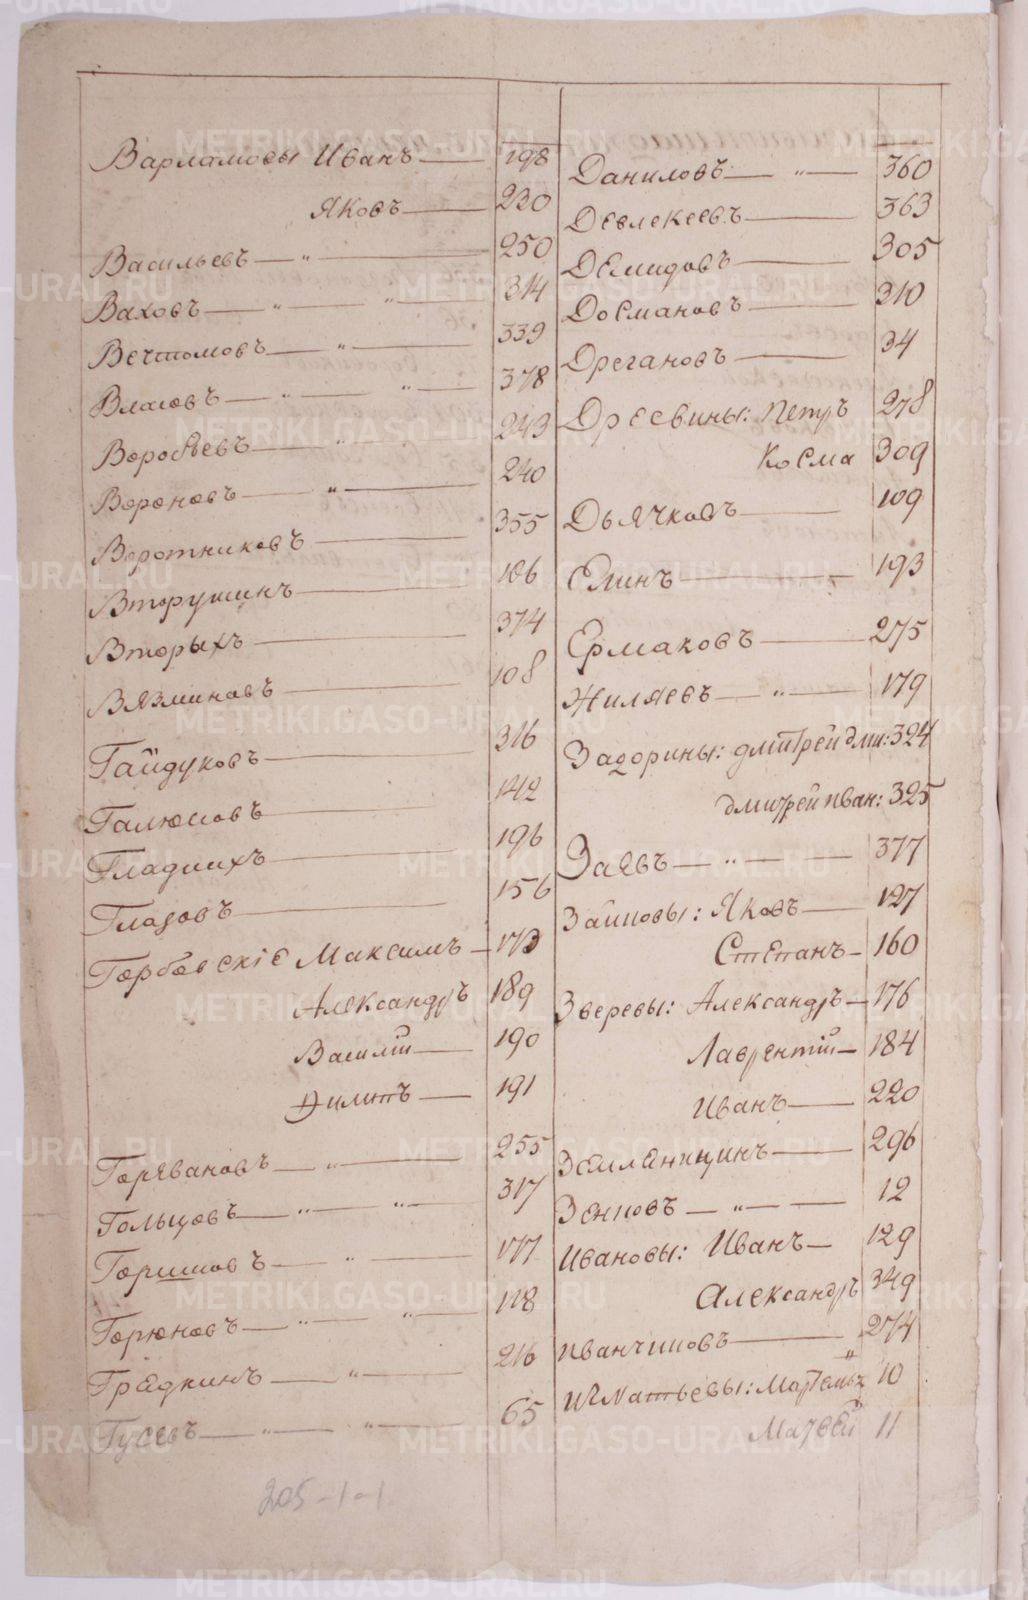 Варламовы Иванъ — 198
Яковъ — 230
Васильевъ — " — 250
Ваховъ — " — " — 314
Вечтомовъ — " — 339
Власовъ — " — " — 378
Воробьевъ — " — 243
Вороновъ — " — 240
Воротниковъ — 355
Вторушинъ — 106
Вторыхъ — 374
Вязминовъ — 108
Гайдуковъ — 316
Галюковъ — 142
Гладкихъ — 196
Глазовъ — 156
Горбовскіе Максимъ — 173
Александръ 189
Василій — 190
Филипъ — 191
Горявановъ — " — 255
Гольцовъ — " — " — 317
Горшковъ — " — 177
Горюновъ — " — " — 118
Грядкинъ — " — 216
Гусевъ — " — " — 65
205-1-1
Даниловъ — " — 360
Девлекеевъ — 363
Демидовъ — 305
Досмановъ — 310
Дрегановъ — 34
Дресвины: Петръ 278
Косма 309
Дьячковъ — 109
Елинъ — 193
Ермаковъ — 275
Жиляевъ — " — 179
Задорины: Дмитрей Дми: 324
Дмитрей Иван: 325
Заявъ — " — 377
Заиковы: Яковъ — 127
Степанъ — 160
Зверевы: Александръ — 176
Лаврентій — 184
Иванъ — 220
Землѣницинъ — 296
Зенковъ — " — 12
Ивановы: Иванъ — 129
Александръ 349
Иванчиковъ — " 274
Игнатьевы: Мартемьн 10
Матвей 11
METRIKI.GASO-URAL.RU